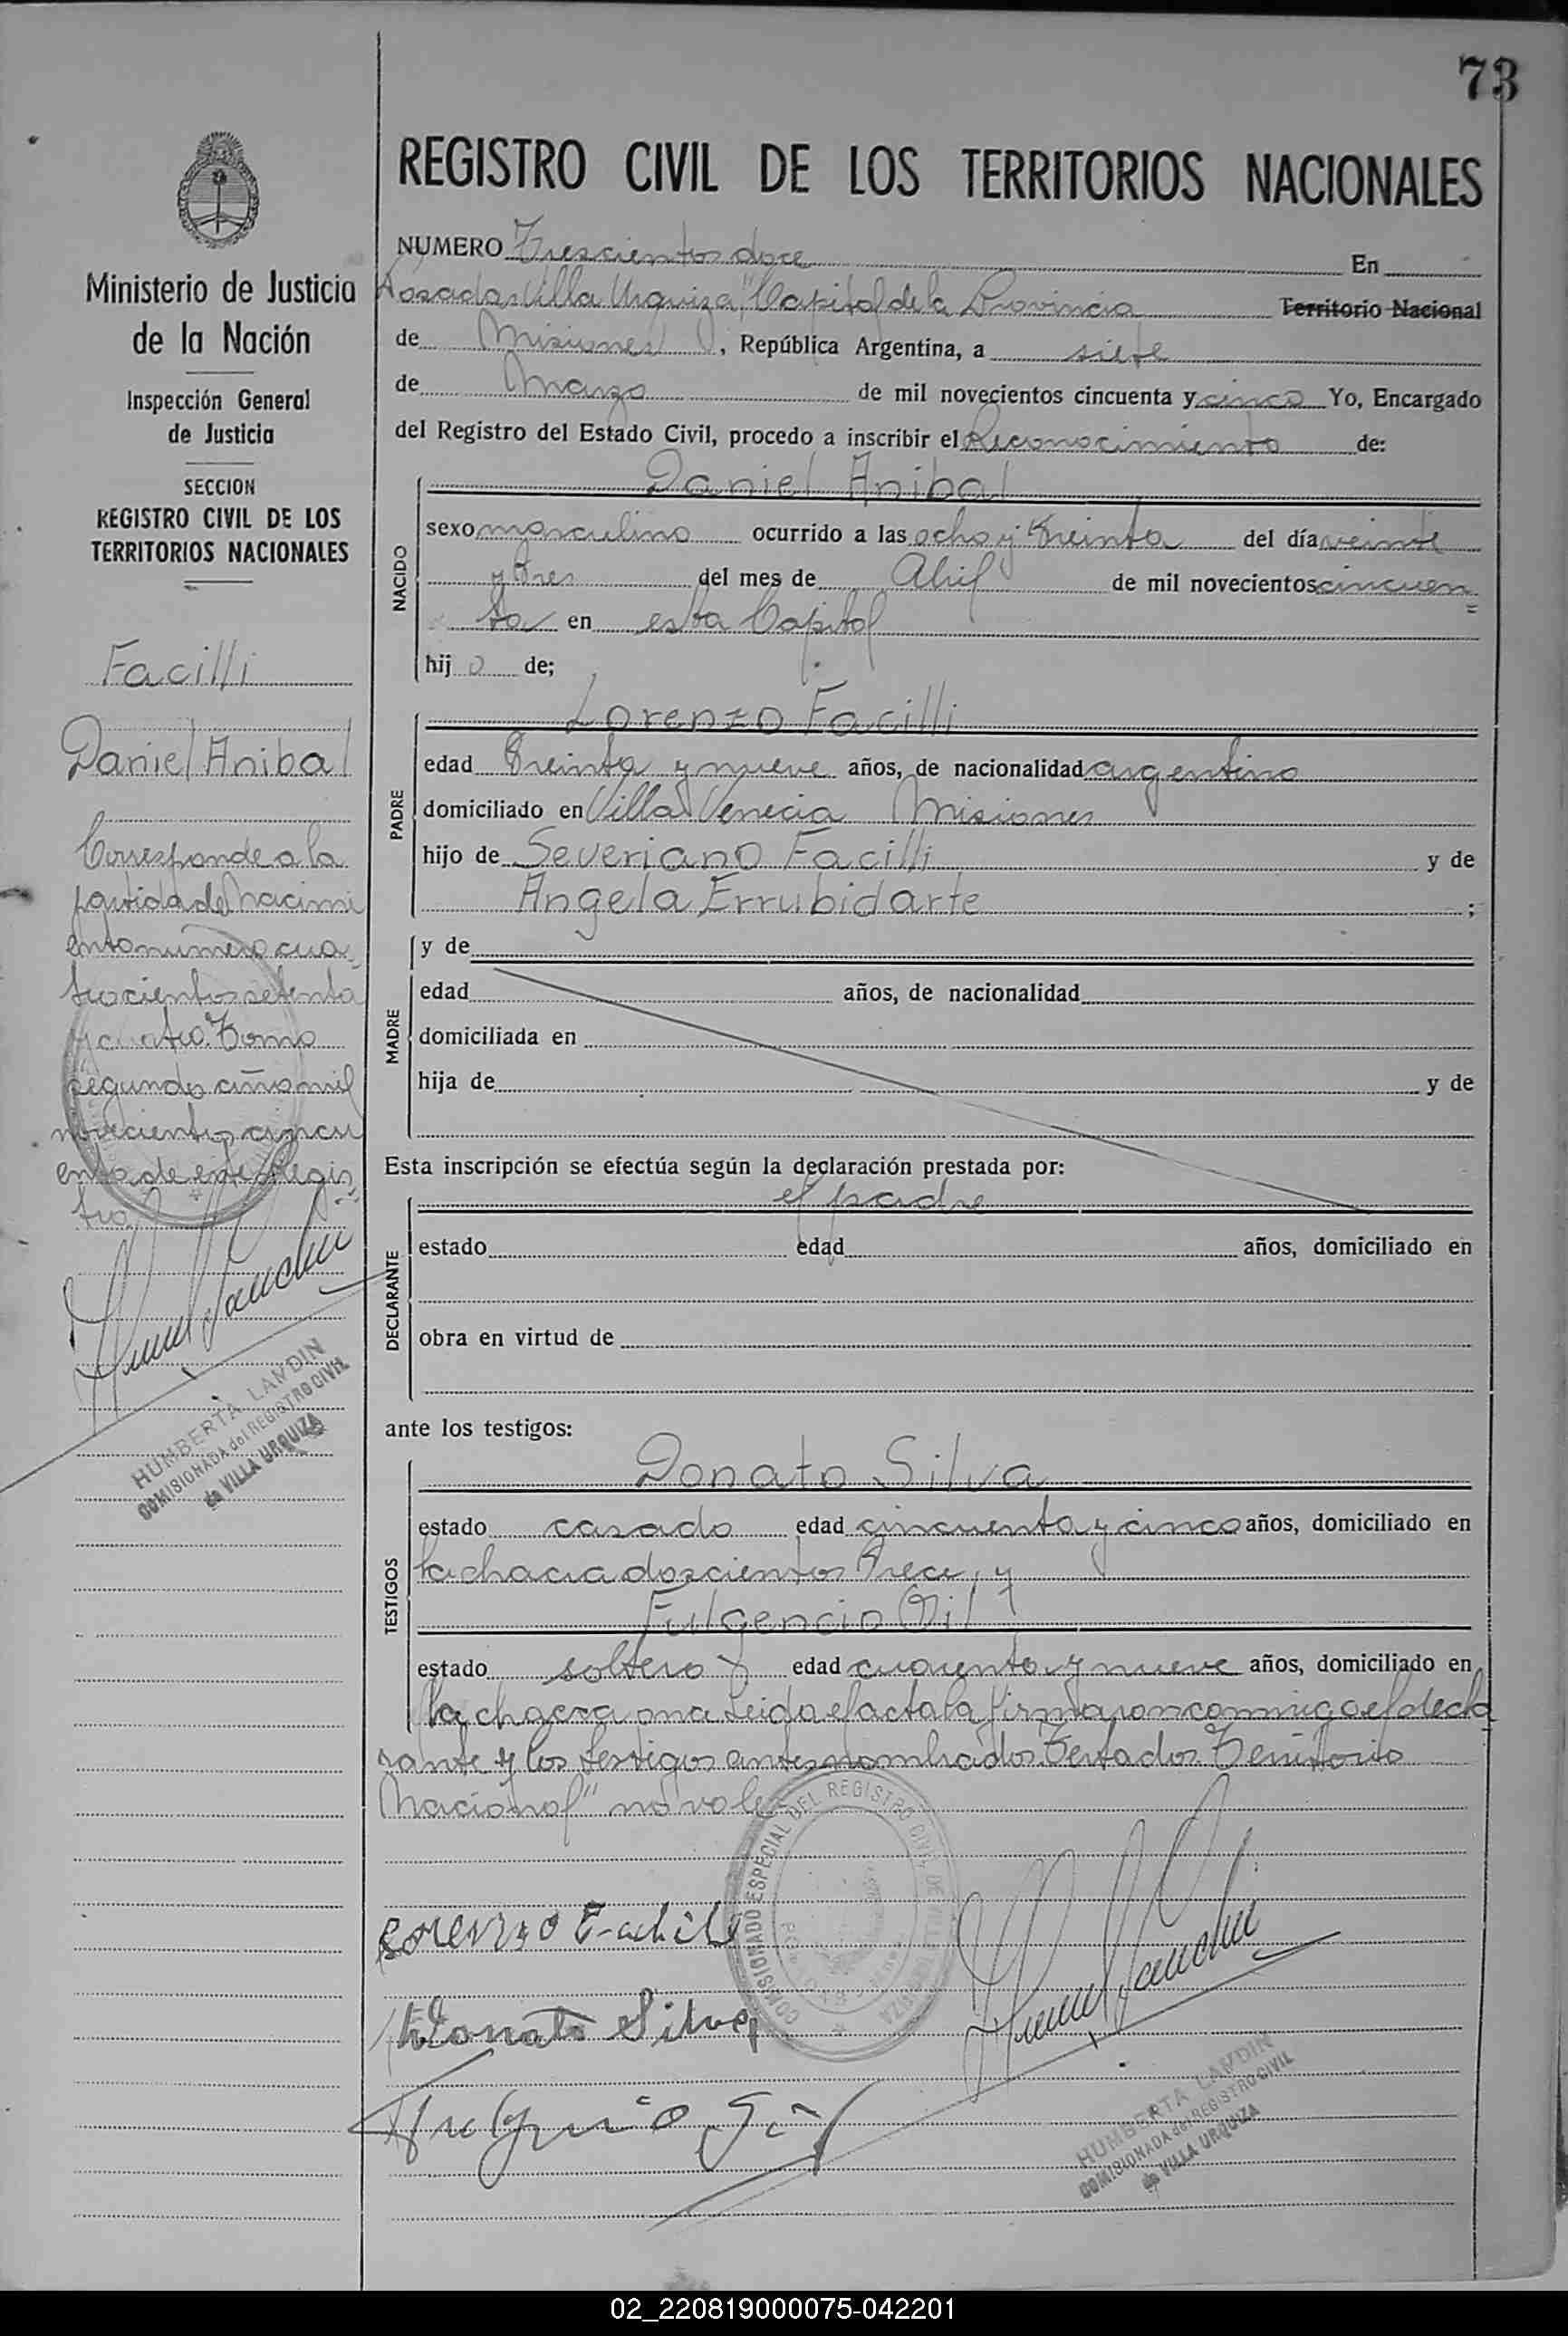 73
REGISTRO CIVIL DE LOS TERRITORIOS NACIONALES
Ministerio de Justicia
de la Nación
Inspección General
de Justicia
SECCION
REGISTRO CIVIL DE LOS
TERRITORIOS NACIONALES
Facilli
Daniel Anibal
Corresponde a la
partida de Nacimi
ento numero cua-
trocientos setenta
y cuatro. Tomo
segundo año mil
novecientos cincu
enta de este Regis-
tro
HUMBERTA LANDIN
COMISIONADA del REGISTRO CIVIL
de VILLA URQUIZA
NUMERO Trescientos doce En
Posadas Villa Urquiza "Capital de la Provincia Territorio Nacional
de Misiones, República Argentina, a siete
de Marzo de mil novecientos cincuenta y cinco Yo, Encargado
del Registro del Estado Civil, procedo a inscribir el Reconocimiento de:
NACIDO
Daniel Anibal
sexo masculino ocurrido a las ocho y treinta del día veinti
y tres del mes de Abril de mil novecientos cincuen
ta en esta Capital
hijo de;
PADRE
Lorenzo Facilli
edad treinta y nueve años, de nacionalidad argentino
domiciliado en Villa Venecia Misiones
hijo de Severiano Facilli y de
Angela Errubidarte ;
MADRE
y de
edad años, de nacionalidad
domiciliada en
hija de y de
Esta inscripción se efectúa según la declaración prestada por:
DECLARANTE
el padre
estado edad años, domiciliado en
obra en virtud de
ante los testigos:
TESTIGOS
Donato Silva
estado casado edad cincuenta y cinco años, domiciliado en
la chacra doscientos trece, y
Fulgencio Gil
estado soltero edad cuarenta y nueve años, domiciliado en
la chacra once Leida el acta la firmaron conmigo el decla
rante y los testigos antes nombrados. Testado: Territorio
Nacional" no vale
COMISIONADO ESPECIAL DEL REGISTRO CIVIL DE VILLA URQUIZA
Lorenzo
Donato Silva
HUMBERTA LANDIN
COMISIONADA del REGISTRO CIVIL
de VILLA URQUIZA
02_220819000075-042201